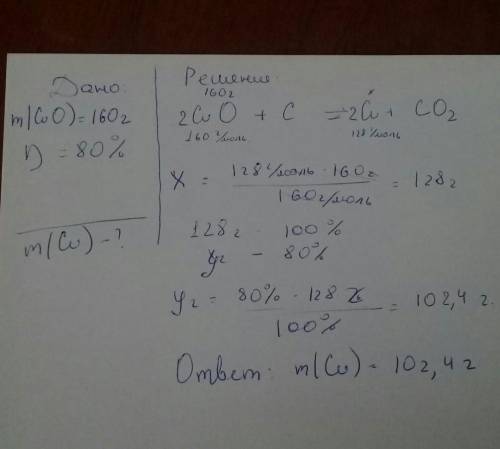 Дано:
m(CuO)=160г
η = 80%
m(Cu)-?
Решение
160г x
2CuO + C = 2Cu + CO2
160 г/моль 128 г/моль
X = 128 г/моль · 160г / 160г/моль = 128г
128г - 100%
yг - 80%
yг = 80% · 128г / 100% = 102,4 г.
Ответ: m(Cu) = 102,4 г